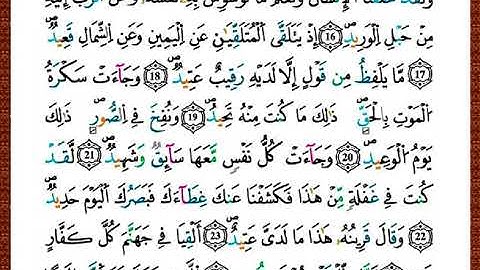 وَلَقَدْ خَلَقْنَا الْإِنسَٰنَ وَنَعْلَمُ مَا تُوَسْوِسُ بِهِ نَفْسُهُ وَنَحْنُ أَقْرَبُ إِلَيْهِ
مِنْ حَبْلِ الْوَرِيدِ ١٦ إِذْ يَتَلَقَّى الْمُتَلَقِّيَٰنِ عَنِ الْيَمِينِ وَعَنِ الشِّمَالِ قَعِيدٌ
17 مَّا يَلْفِظُ مِن قَوْلٍ إِلَّا لَدَيْهِ رَقِيبٌ عَتِيدٌ 18 وَجَآءَتْ سَكْرَةُ
الْمَوْتِ بِالْحَقِّ ذَٰلِكَ مَا كُنتَ مِنْهُ تَحِيدُ 19 وَنُفِخَ فِى الصُّورِ ذَٰلِكَ
يَوْمُ الْوَعِيدِ 20 وَجَآءَتْ كُلُّ نَفْسٍ مَّعَهَا سَآئِقٌ وَشَهِيدٌ 21 لَّقَدْ
كُنتَ فِى غَفْلَةٍ مِّنْ هَٰذَا فَكَشَفْنَا عَنكَ غِطَآءَكَ فَبَصَرُكَ الْيَوْمَ حَدِيدٌ
22 وَقَالَ قَرِينُهُۥ هَٰذَا مَا لَدَىَّ عَتِيدٌ 23 أَلْقِيَا فِى جَهَنَّمَ كُلَّ كَفَّارٍ